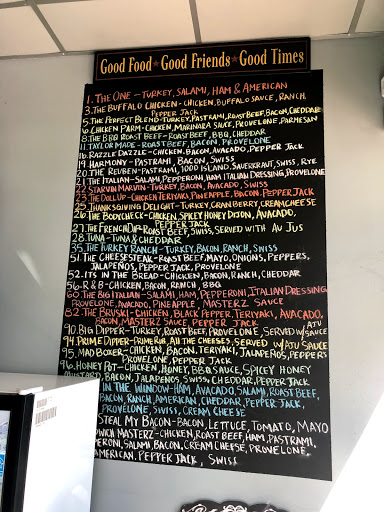 Good Food ★ Good Friends ★ Good Times
1. THE ONE - TURKEY, SALAMI, HAM & AMERICAN
3. THE BUFFALO CHICKEN - CHICKEN, BUFFALO SAUCE, RANCH,
PEPPER JACK
5. THE PERFECT BLEND - TURKEY, PASTRAMI, ROAST BEEF, BACON, CHEDDAR
6. CHICKEN PARM - CHICKEN, MARINARA SAUCE, PROVELONE, PARMESAN
8. THE BBQ ROAST BEEF - ROAST BEEF, BBQ, CHEDDAR
11. TAYLOR MADE - ROAST BEEF, BACON, PROVELONE
16. RAZZLE DAZZLE - CHICKEN, BACON, AVOCADO, PEPPER JACK
19. HARMONY - PASTRAMI, BACON, SWISS
20. THE REUBEN - PASTRAMI, 1000 ISLAND, SAUERKRAUT, SWISS, RYE
21. THE ITALIAN - SALAMI, PEPPERONI, HAM, ITALIAN DRESSING, PROVELONE
22. STARVIN MARVIN - TURKEY, BACON, AVOCADO, SWISS
23. THE DOLL UP - CHICKEN, TERIYAKI, PINEAPPLE, BACON, PEPPER JACK
25. THANKSGIVING DELIGHT - TURKEY, CRANBERRY, CREAM CHEESE
26. THE BODYCHECK - CHICKEN, SPICEY HONEY DIJON, AVOCADO,
PEPPER JACK
27. THE FRENCH DIP - ROAST BEEF, SWISS, SERVED WITH AU JUS
28. TUNA - TUNA & CHEDDAR
35. THE TURKEY RANCH - TURKEY, BACON, RANCH, SWISS
51. THE CHEESESTEAK - ROAST BEEF, MAYO, ONIONS, PEPPERS,
JALAPEÑOS, PEPPER JACK, PROVELONE
52. ITS IN THE BREAD - CHICKEN, BACON, RANCH, CHEDDAR
56. R & B - CHICKEN, BACON, RANCH, BBQ
60. THE BIG ITALIAN - SALAMI, HAM, PEPPERONI, ITALIAN DRESSING
PROVELONE, AVOCADO, PINEAPPLE, MASTERZ SAUCE
82. THE BRUSKI - CHICKEN, BLACK PEPPER, TERIYAKI, AVOCADO,
BACON, MASTERZ SAUCE, PEPPER JACK
90. BIG DIPPER - TURKEY, ROAST BEEF, PROVELONE, SERVED W/ AJU SAUCE
94. PRIME DIPPER - PRIME RIB, ALL THE CHEESES, SERVED W/ AJU SAUCE
95. MAD BOXER - CHICKEN, BACON, TERIYAKI, JALAPEÑOS, PEPPERS
PROVELONE, PEPPER JACK
96. HONEY POT - CHICKEN, HONEY, BBQ SAUCE, SPICEY HONEY
MUSTARD, BACON, JALAPENOS, SWISS, CHEDDAR, PEPPER JACK
IN THE WINDOW - HAM, AVOCADO, SALAMI, ROAST BEEF,
BACON, RANCH, AMERICAN, CHEDDAR, PEPPER JACK,
PROVELONE, SWISS, CREAM CHEESE
STEAL MY BACON - BACON, LETTUCE, TOMATO, MAYO
MASTERZ - CHICKEN, ROAST BEEF, HAM, PASTRAMI,
SALAMI, BACON, CREAM CHEESE, PROVELONE,
AMERICAN, PEPPER JACK, SWISS